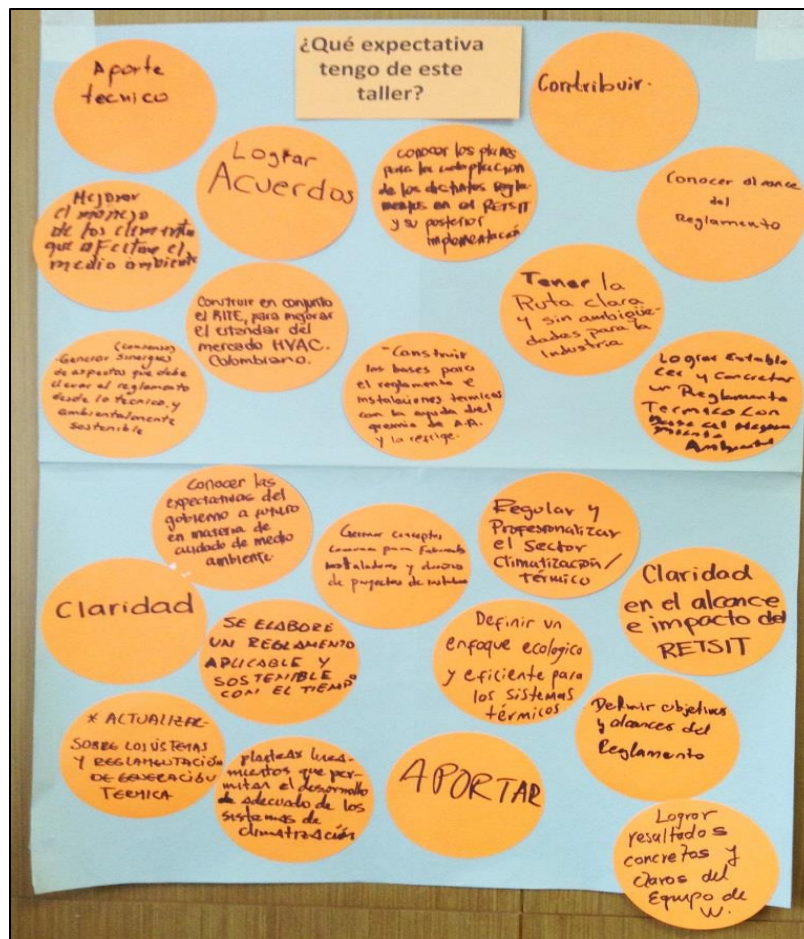 ¿Qué expectativa
tengo de este
taller?
Aporte
tecnico
Contribuir.
Lograr
Acuerdos
conocer los planes
para la
de los distintos Regla-
mentos en el RETSIT
y su posterior
implementación
Conocer alcance
del
Reglamento
Mejorar
el manejo
de los
que afectan el
medio ambiente
Construir en conjunto
el RITE, para mejorar
el estandar del
mercado HVAC.
Colombiano.
Tener la
Ruta clara
y sin ambigüe-
dades para la
Industria
(consensos)
-Generar sinergias
de aspectos que debe
llevar el reglamento
desde lo tecnico, y
ambientalmente
sostenible
-Construir
las bases para
el reglamento e
instalaciones termicas
con la ayuda del
gremio de A.A.
y la refrige.
Lograr Estable
cer y Concretar
un Reglamento
Termico con
Base al
Ambiental
Conocer las
expectativas del
gobierno a futuro
en materia de
cuidado de medio
ambiente.
Generar conceptos
comunes para
instaladores y
de proyectos de
Regular y
Profesionalizar
el Sector
Climatización/
térmico
Claridad
Claridad
en el alcance
e impacto del
RETSIT
SE ELABORE
UN REGLAMENTO
APLICABLE Y
SOSTENIBLE
CON EL TIEMPO
Definir un
enfoque ecologico
y eficiente para
los sistemas
térmicos
Definir objetivos
y alcances del
Reglamento
* ACTUALIZAR-
SOBRE LOS SISTEMAS
Y REGLAMENTACIÓN
DE GENERACIÓN
TERMICA
plantear linea-
mientos que per-
mitan el desarrollo
adecuado de los
sistemas de
climatización
APORTAR
Lograr
resultados
concretos y
claros del
Equipo de
W.